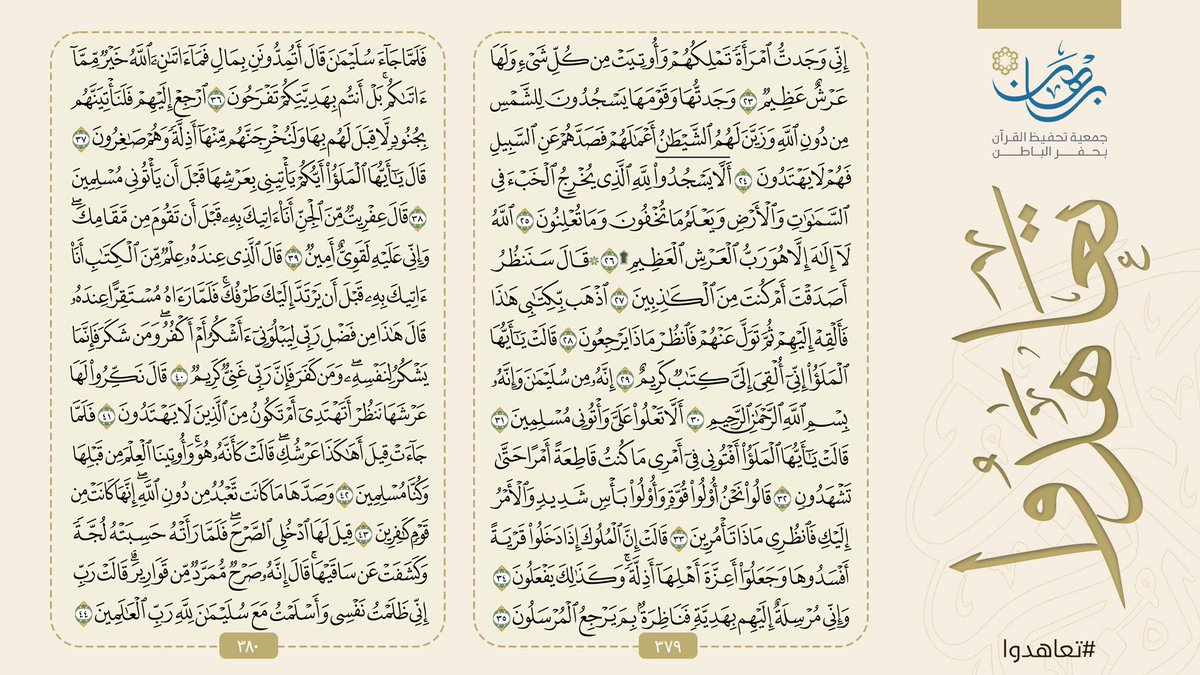 برهان
جمعية تحفيظ القرآن
بحفر الباطن
تعاهدوا
#تعاهدوا
إِنِّي وَجَدتُّ ٱمْرَأَةً تَمْلِكُهُمْ وَأُوتِيَتْ مِن كُلِّ شَيْءٍ وَلَهَا
عَرْشٌ عَظِيمٌ ٢٣ وَجَدتُّهَا وَقَوْمَهَا يَسْجُدُونَ لِلشَّمْسِ
مِن دُونِ ٱللَّهِ وَزَيَّنَ لَهُمُ ٱلشَّيْطَٰنُ أَعْمَٰلَهُمْ فَصَدَّهُمْ عَنِ ٱلسَّبِيلِ
فَهُمْ لَا يَهْتَدُونَ ٢٤ أَلَّا يَسْجُدُوا۟ لِلَّهِ ٱلَّذِي يُخْرِجُ ٱلْخَبْءَ فِي
ٱلسَّمَٰوَٰتِ وَٱلْأَرْضِ وَيَعْلَمُ مَا تُخْفُونَ وَمَا تُعْلِنُونَ ٢٥ ٱللَّهُ
لَآ إِلَٰهَ إِلَّا هُوَ رَبُّ ٱلْعَرْشِ ٱلْعَظِيمِ ۩ ٢٦ ۞ قَالَ سَنَنظُرُ
أَصَدَقْتَ أَمْ كُنتَ مِنَ ٱلْكَٰذِبِينَ ٢٧ ٱذْهَب بِّكِتَٰبِي هَٰذَا
فَأَلْقِهْ إِلَيْهِمْ ثُمَّ تَوَلَّ عَنْهُمْ فَٱنظُرْ مَاذَا يَرْجِعُونَ ٢٨ قَالَتْ يَٰٓأَيُّهَا
ٱلْمَلَؤُا۟ إِنِّيٓ أُلْقِيَ إِلَيَّ كِتَٰبٌ كَرِيمٌ ٢٩ إِنَّهُۥ مِن سُلَيْمَٰنَ وَإِنَّهُۥ
بِسْمِ ٱللَّهِ ٱلرَّحْمَٰنِ ٱلرَّحِيمِ ٣٠ أَلَّا تَعْلُوا۟ عَلَيَّ وَأْتُونِي مُسْلِمِينَ ٣١
قَالَتْ يَٰٓأَيُّهَا ٱلْمَلَؤُا۟ أَفْتُونِي فِيٓ أَمْرِي مَا كُنتُ قَاطِعَةً أَمْرًا حَتَّىٰ
تَشْهَدُونِ ٣٢ قَالُوا۟ نَحْنُ أُو۟لُوا۟ قُوَّةٍ وَأُو۟لُوا۟ بَأْسٍ شَدِيدٍ وَٱلْأَمْرُ
إِلَيْكِ فَٱنظُرِي مَاذَا تَأْمُرِينَ ٣٣ قَالَتْ إِنَّ ٱلْمُلُوكَ إِذَا دَخَلُوا۟ قَرْيَةً
أَفْسَدُوهَا وَجَعَلُوٓا۟ أَعِزَّةَ أَهْلِهَآ أَذِلَّةً ۖ وَكَذَٰلِكَ يَفْعَلُونَ ٣٤
وَإِنِّي مُرْسِلَةٌ إِلَيْهِم بِهَدِيَّةٍ فَنَاظِرَةٌۢ بِمَ يَرْجِعُ ٱلْمُرْسَلُونَ ٣٥
٣٧٩
فَلَمَّا جَآءَ سُلَيْمَٰنَ قَالَ أَتُمِدُّونَنِ بِمَالٍ فَمَآ ءَاتَىٰنِۦَ ٱللَّهُ خَيْرٌ مِّمَّآ
ءَاتَىٰكُم بَلْ أَنتُم بِهَدِيَّتِكُمْ تَفْرَحُونَ ٣٦ ٱرْجِعْ إِلَيْهِمْ فَلَنَأْتِيَنَّهُم
بِجُنُودٍ لَّا قِبَلَ لَهُم بِهَا وَلَنُخْرِجَنَّهُم مِّنْهَآ أَذِلَّةً وَهُمْ صَٰغِرُونَ ٣٧
قَالَ يَٰٓأَيُّهَا ٱلْمَلَؤُا۟ أَيُّكُمْ يَأْتِينِي بِعَرْشِهَا قَبْلَ أَن يَأْتُونِي مُسْلِمِينَ
٣٨ قَالَ عِفْرِيتٌ مِّنَ ٱلْجِنِّ أَنَا۠ ءَاتِيكَ بِهِۦ قَبْلَ أَن تَقُومَ مِن مَّقَامِكَ ۖ
وَإِنِّي عَلَيْهِ لَقَوِيٌّ أَمِينٌ ٣٩ قَالَ ٱلَّذِي عِندَهُۥ عِلْمٌ مِّنَ ٱلْكِتَٰبِ أَنَا۠
ءَاتِيكَ بِهِۦ قَبْلَ أَن يَرْتَدَّ إِلَيْكَ طَرْفُكَ ۚ فَلَمَّا رَءَاهُ مُسْتَقِرًّا عِندَهُۥ
قَالَ هَٰذَا مِن فَضْلِ رَبِّي لِيَبْلُوَنِيٓ ءَأَشْكُرُ أَمْ أَكْفُرُ ۖ وَمَن شَكَرَ فَإِنَّمَا
يَشْكُرُ لِنَفْسِهِۦ ۖ وَمَن كَفَرَ فَإِنَّ رَبِّي غَنِيٌّ كَرِيمٌ ٤٠ قَالَ نَكِّرُوا۟ لَهَا
عَرْشَهَا نَنظُرْ أَتَهْتَدِيٓ أَمْ تَكُونُ مِنَ ٱلَّذِينَ لَا يَهْتَدُونَ ٤١ فَلَمَّا
جَآءَتْ قِيلَ أَهَٰكَذَا عَرْشُكِ ۖ قَالَتْ كَأَنَّهُۥ هُوَ ۚ وَأُوتِينَا ٱلْعِلْمَ مِن قَبْلِهَا
وَكُنَّا مُسْلِمِينَ ٤٢ وَصَدَّهَا مَا كَانَت تَّعْبُدُ مِن دُونِ ٱللَّهِ ۖ إِنَّهَا كَانَتْ مِن
قَوْمٍ كَٰفِرِينَ ٤٣ قِيلَ لَهَا ٱدْخُلِي ٱلصَّرْحَ ۖ فَلَمَّا رَأَتْهُ حَسِبَتْهُ لُجَّةً
وَكَشَفَتْ عَن سَاقَيْهَا ۚ قَالَ إِنَّهُۥ صَرْحٌ مُّمَرَّدٌ مِّن قَوَارِيرَ ۗ قَالَتْ رَبِّ
إِنِّي ظَلَمْتُ نَفْسِي وَأَسْلَمْتُ مَعَ سُلَيْمَٰنَ لِلَّهِ رَبِّ ٱلْعَٰلَمِينَ ٤٤
٣٨٠